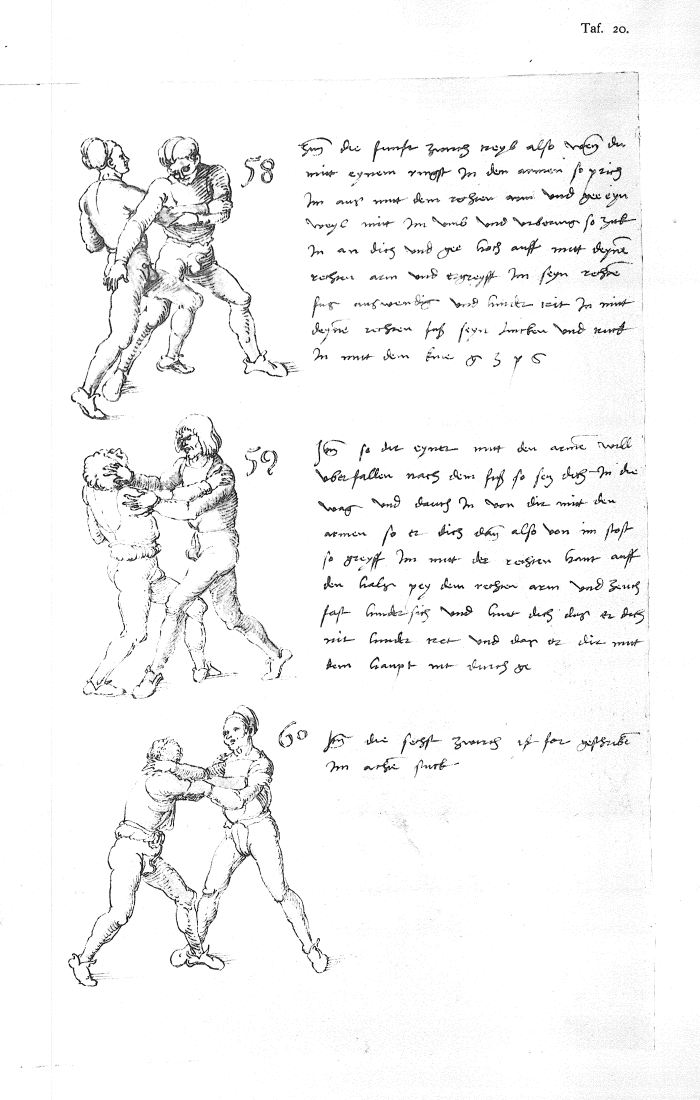 Taf. 20.
58
Itm̄ die funft zwirch treyb also wen̄ du
mitt eynem ringst In den armen so prich
Im aus mitt dem rechten arm vnd gee eyn
weyl mitt Im vmb vnd so zuck
In an dich vnd gee hoch auff mitt deyne
rechten arm vnd ergreyff Im seyn rechte
fus auswendig vnd hinder trit In mitt
deyne rechten fus seyn lincken vnd ruck
In mitt dem knie
59
Itm̄ so dir eyner mitt den arme will
vberfallen nach dem fus so sey dich In die
wag vnd dauch In von dir mitt den
armen so er dich dan̄ also von im stost
so greyff Im mitt der rechten hant auff
den hals pey dem rechten arm vnd zeuch
fast hinder sich vnd huet dich das er dich
nit hinder tret vnd das er dir mitt
dem haupt nit durch ge
60
Itm̄ die sechst zwirch ist for geschribe
Im achte stuck